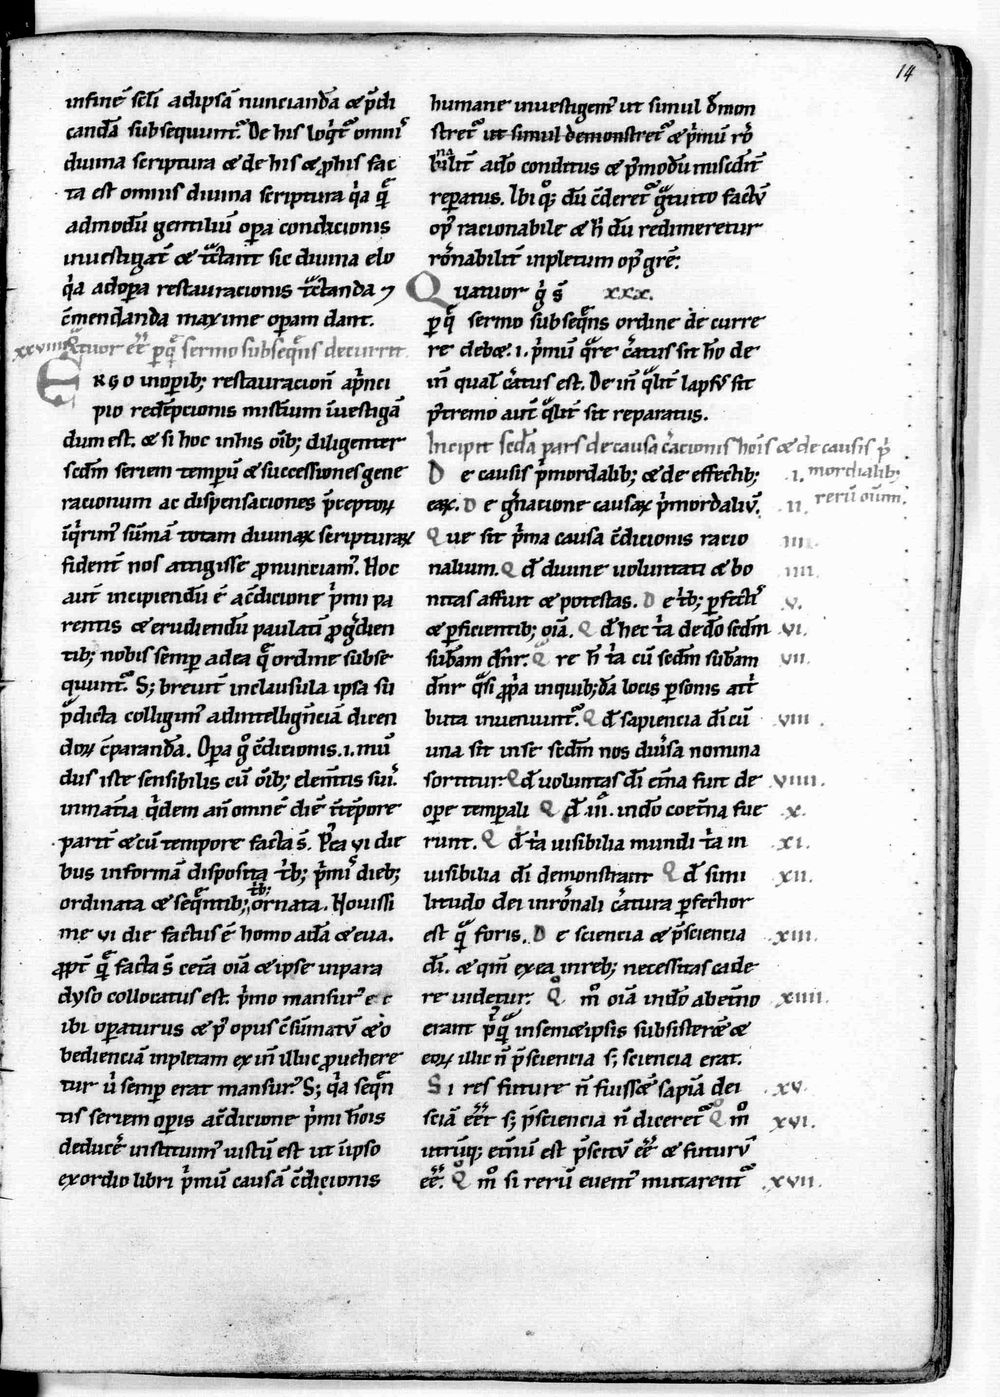 14
infinē scłi adipsā nuncianda & p̄di
canda subsequunt᷑. De his loq̇t᷑ omnis
diuina scriptura & de his & p̱ his fac
ta est omnis diuina scriptura q̇a qᷓ
admodū gentiliū opa condicionis
inuestigat̄ & tᷓctant sic diuina elo
q̇a adopa restauracionis tᷓctanda ⁊
c̄mendanda maxime opam dant.
xxviiii Qᷓtuor eē p̱qᷓ sermo subseq̄ns decurrit
Ergo inopib; restauracioni aṗnci
pio redēpcionis mist̄ium īuestigā
dum est. & si hoc inhis oīb; diligenter
scdm seriem tempū & successiones gene
racionum ac dispensaciones p̄ceptoꝝ
īq̇rim᷒ sūmā totam diuinaꝝ scripturaꝝ
fident̄ nos attigisse ꝓnunciam᷒. Hoc
aut̄ incipiendū ē ac̄dicione ṗmi pa
rentis & erudiendū paulatī ꝓgᷓdien
tib; nobis semp adea qᷓ ordine subse
quunt᷑. S; breuit̄ inclausula ipsa su
p̄dicta colligim᷒ adintellign̄ciā dicen
doꝝ c̄paranda. Opa g̊ c̄dicionis .i. mū
dus iste sensibilis cū oīb; elem̄tis suis
inmat̄ia q̇dem an̄ omnē diē ī tēpore
parit̄ & cū tempore facta s̄. P᷒ea vi die
bus informā disposita t̄b; ṗmis dieb;
ordinata & seq̄ntib; t̄b; ornata. Nouissi
me vi die factus ē homo adā & eua.
ꝓpt̄ qᷓ facta s̄ cet̄a oīa & ipse inpara
dyso collocatus est. ṗmo mansur᷒ & 
ibi operaturus & p᷒ opus c̄sūmatū & o
bedienciā inpletam ex in̄ illuc ꝓuehere
tur ů semp erat mansur᷒. S; q̇a seqn̄
tis seriem opis ac̄dicione ṗmi hōis
deducē instituim᷒ iustū est ut ī ipso
exordio libri ṗmū causā c̄dicionis
humane inuestigem᷒ ut simul d̄mon
stret᷑ ut simul demonstret᷑ & ṗmū rō
nabilit̄ ado conditus & p᷒modū misc̄dit̄
reparatus. Ibi q̊; dū c̄deret᷑ gᷓtuito factū
op᷒ racionabile & h̄ dū redimeretur
rōnabilit̄ inpletum op᷒ grē.
Quatuor g̊ s̄ xxx.
p̱qᷓ sermo subseq̄ns ordine decurre
re debet .i. ṗmū qᷓre c̄atus sit hō de
in̄ qual c̄atus est. De in̄ qᷓlit̄ lapsus sit
p᷒tremo aut̄ qᷓlit̄ sit reparatus.
Incipit scda pars de causa c̄acionis hōis & de causis ṗ
mordialib;
rerū oīum.
De causis ṗmordalib; & de effectib; .i.
eaꝝ. De gn̄acione causaꝝ ṗmordaliū. .ii.
Que sit ṗma causa c̄dicionis racio .iii.
nalium. Qd duine uoluntati & bo .iiii.
nitas affuit & potestas. De t̄b; p̱fectis .v.
& p̱ficientib; oīa. Qd hec t̄a dedo scdm .vi.
subam dn̄r. Qᷓre h̄ t̄a cū scdm subam .vii.
dn̄r qᷓsi ꝓpa inquib;da locis p̱sonis att̄
buta inueniunt᷑. Qd sapiencia di cū .viii.
una sit inse scdm nos diūsa nomina
sortitur. Qd voluntas di et̄na fuit de .viiii.
ope tempali Qd iii. indo coet̄na fue .x.
runt. Qd t̄a uisibilia mundi t̄a in .xi.
uisibilia di demonstrant Qd simi .xii.
litudo dei inrōnali c̄atura p̱fectior
est qᷓ foris. De sciencia & p̄sciencia .xiii.
di. & qm̄ ex ea inreb; necessitas cade
re uidetur. Qm̊ oīa indo abet̄no .xiiii.
erant p̱qᷓ insem&ipsis subsister& &
eoꝝ illic n̄ p̄sciencia s; sciencia erat.
Si res future n̄ fuissē sapiā dei .xv.
sciā eēt s; p̄sciencia n̄ diceret᷑ Qm̊ .xvi.
utrūq; et̄nū est p̄scitū eē & futurū
eē. Qm̊ si rerū euent᷒ mutarent᷑ .xvii.